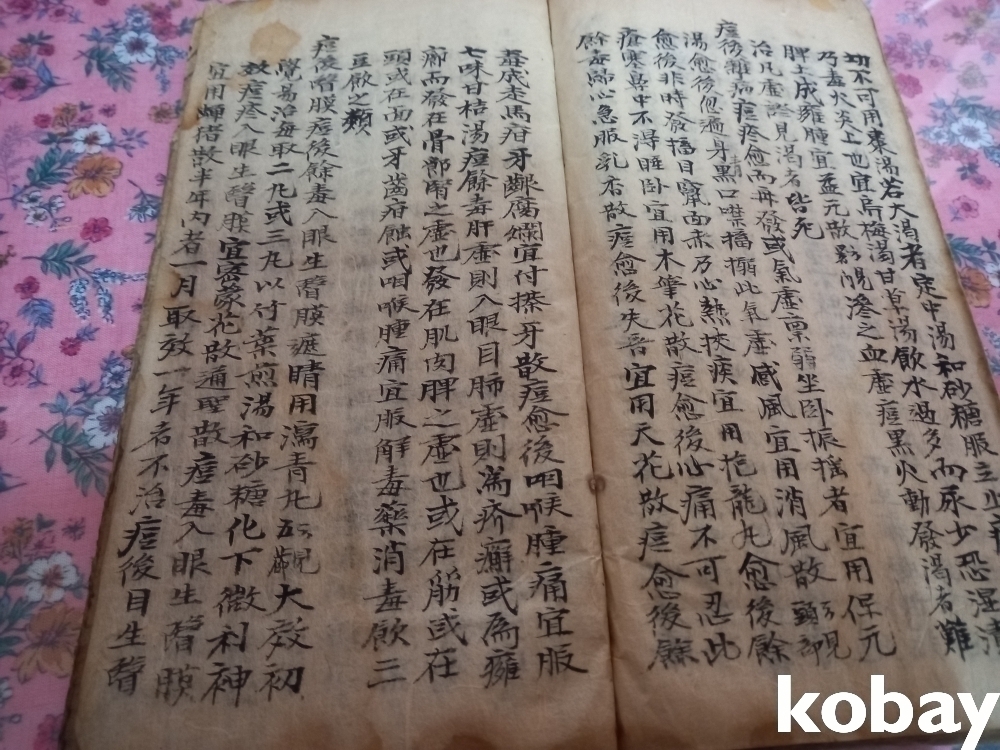 切不可用棗湯若大渴者定中湯和砂糖服立止
乃毒火炎上也宜烏梅湯甘草湯飲水過多而尿少恐濕漬
脾土成癰腫宜益元散 滲之血虛痘黑火動發渴者難
治凡虛 見渴者皆死
痘後雜病痘疹愈而再發或氣虛稟弱坐卧振搖者宜用保元
湯愈後遍身 口噤搐搦此氣虛感風宜用消風散
愈後非時發搐目竄面赤乃心熱挾痰宜用抱龍丸愈後餘
瘡寒鼻中不得睡卧宜用木筆花散痘愈後心痛不可忍此
餘毒 心急服乳香散痘愈後失音宜用天花散痘愈後餘
毒成走馬疳牙齦腐爛宜付搽牙散痘愈後咽喉腫痛宜服
七味甘桔湯痘餘毒肝虛則入眼目肺虛則為疥癬或為癰
癤而發在骨節腎之虛也發在肌肉脾之虛也或在筋或在
頭或在面或牙齒疳蝕或咽喉腫痛宜服解毒藥消毒飲三
豆飲之類
痘後瞖膜痘後餘毒入眼生瞖膜遮睛用瀉青丸 大效初
覺易治每取二丸或三丸以竹葉煎湯和砂糖化下微利神
效痘疹入眼生瞖膜宜密蒙花散通聖散痘毒入眼生瞖膜
宜用蟬 散半年內者一月取效一年者不治痘後目生瞖
kobay